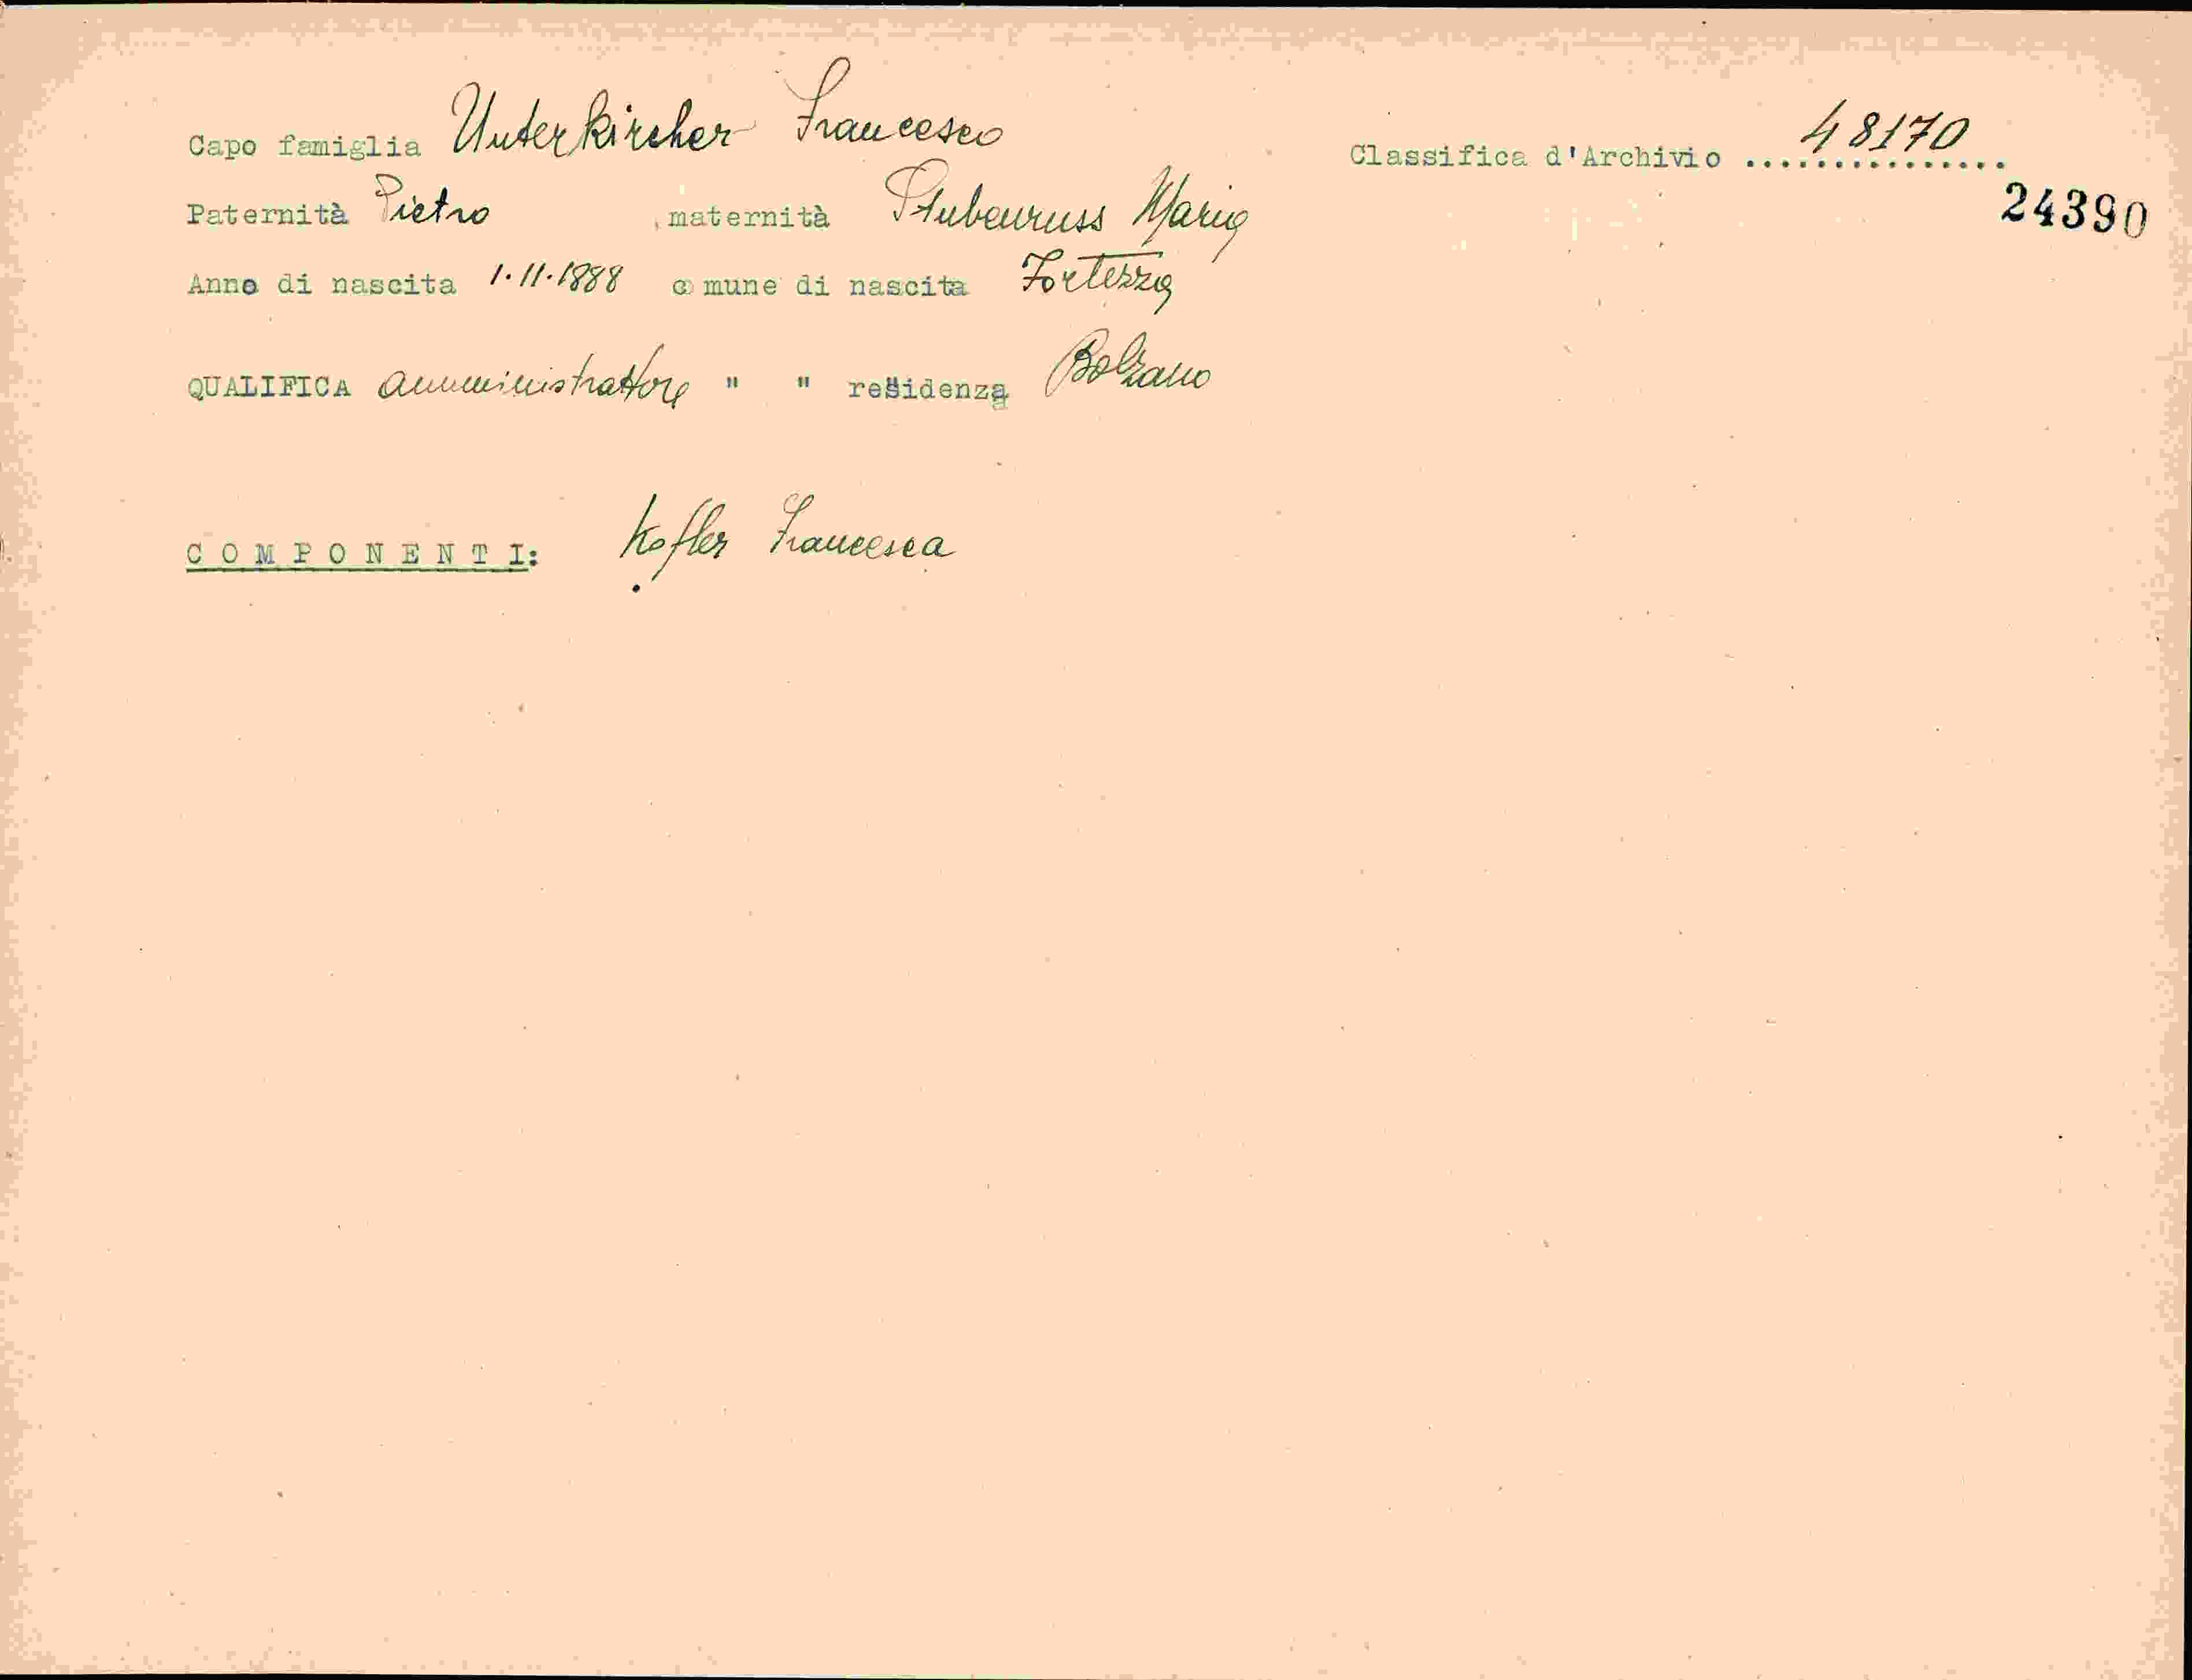 Capo famiglia Unterkircher Francesco
Classifica d'Archivio 48170
24390
Paternità Pietro , maternità Maria
Anno di nascita 1.11.1888 comune di nascita Fortezza
QUALIFICA amministratore " " residenza Bolzano
COMPONENTI: Kofler Francesca